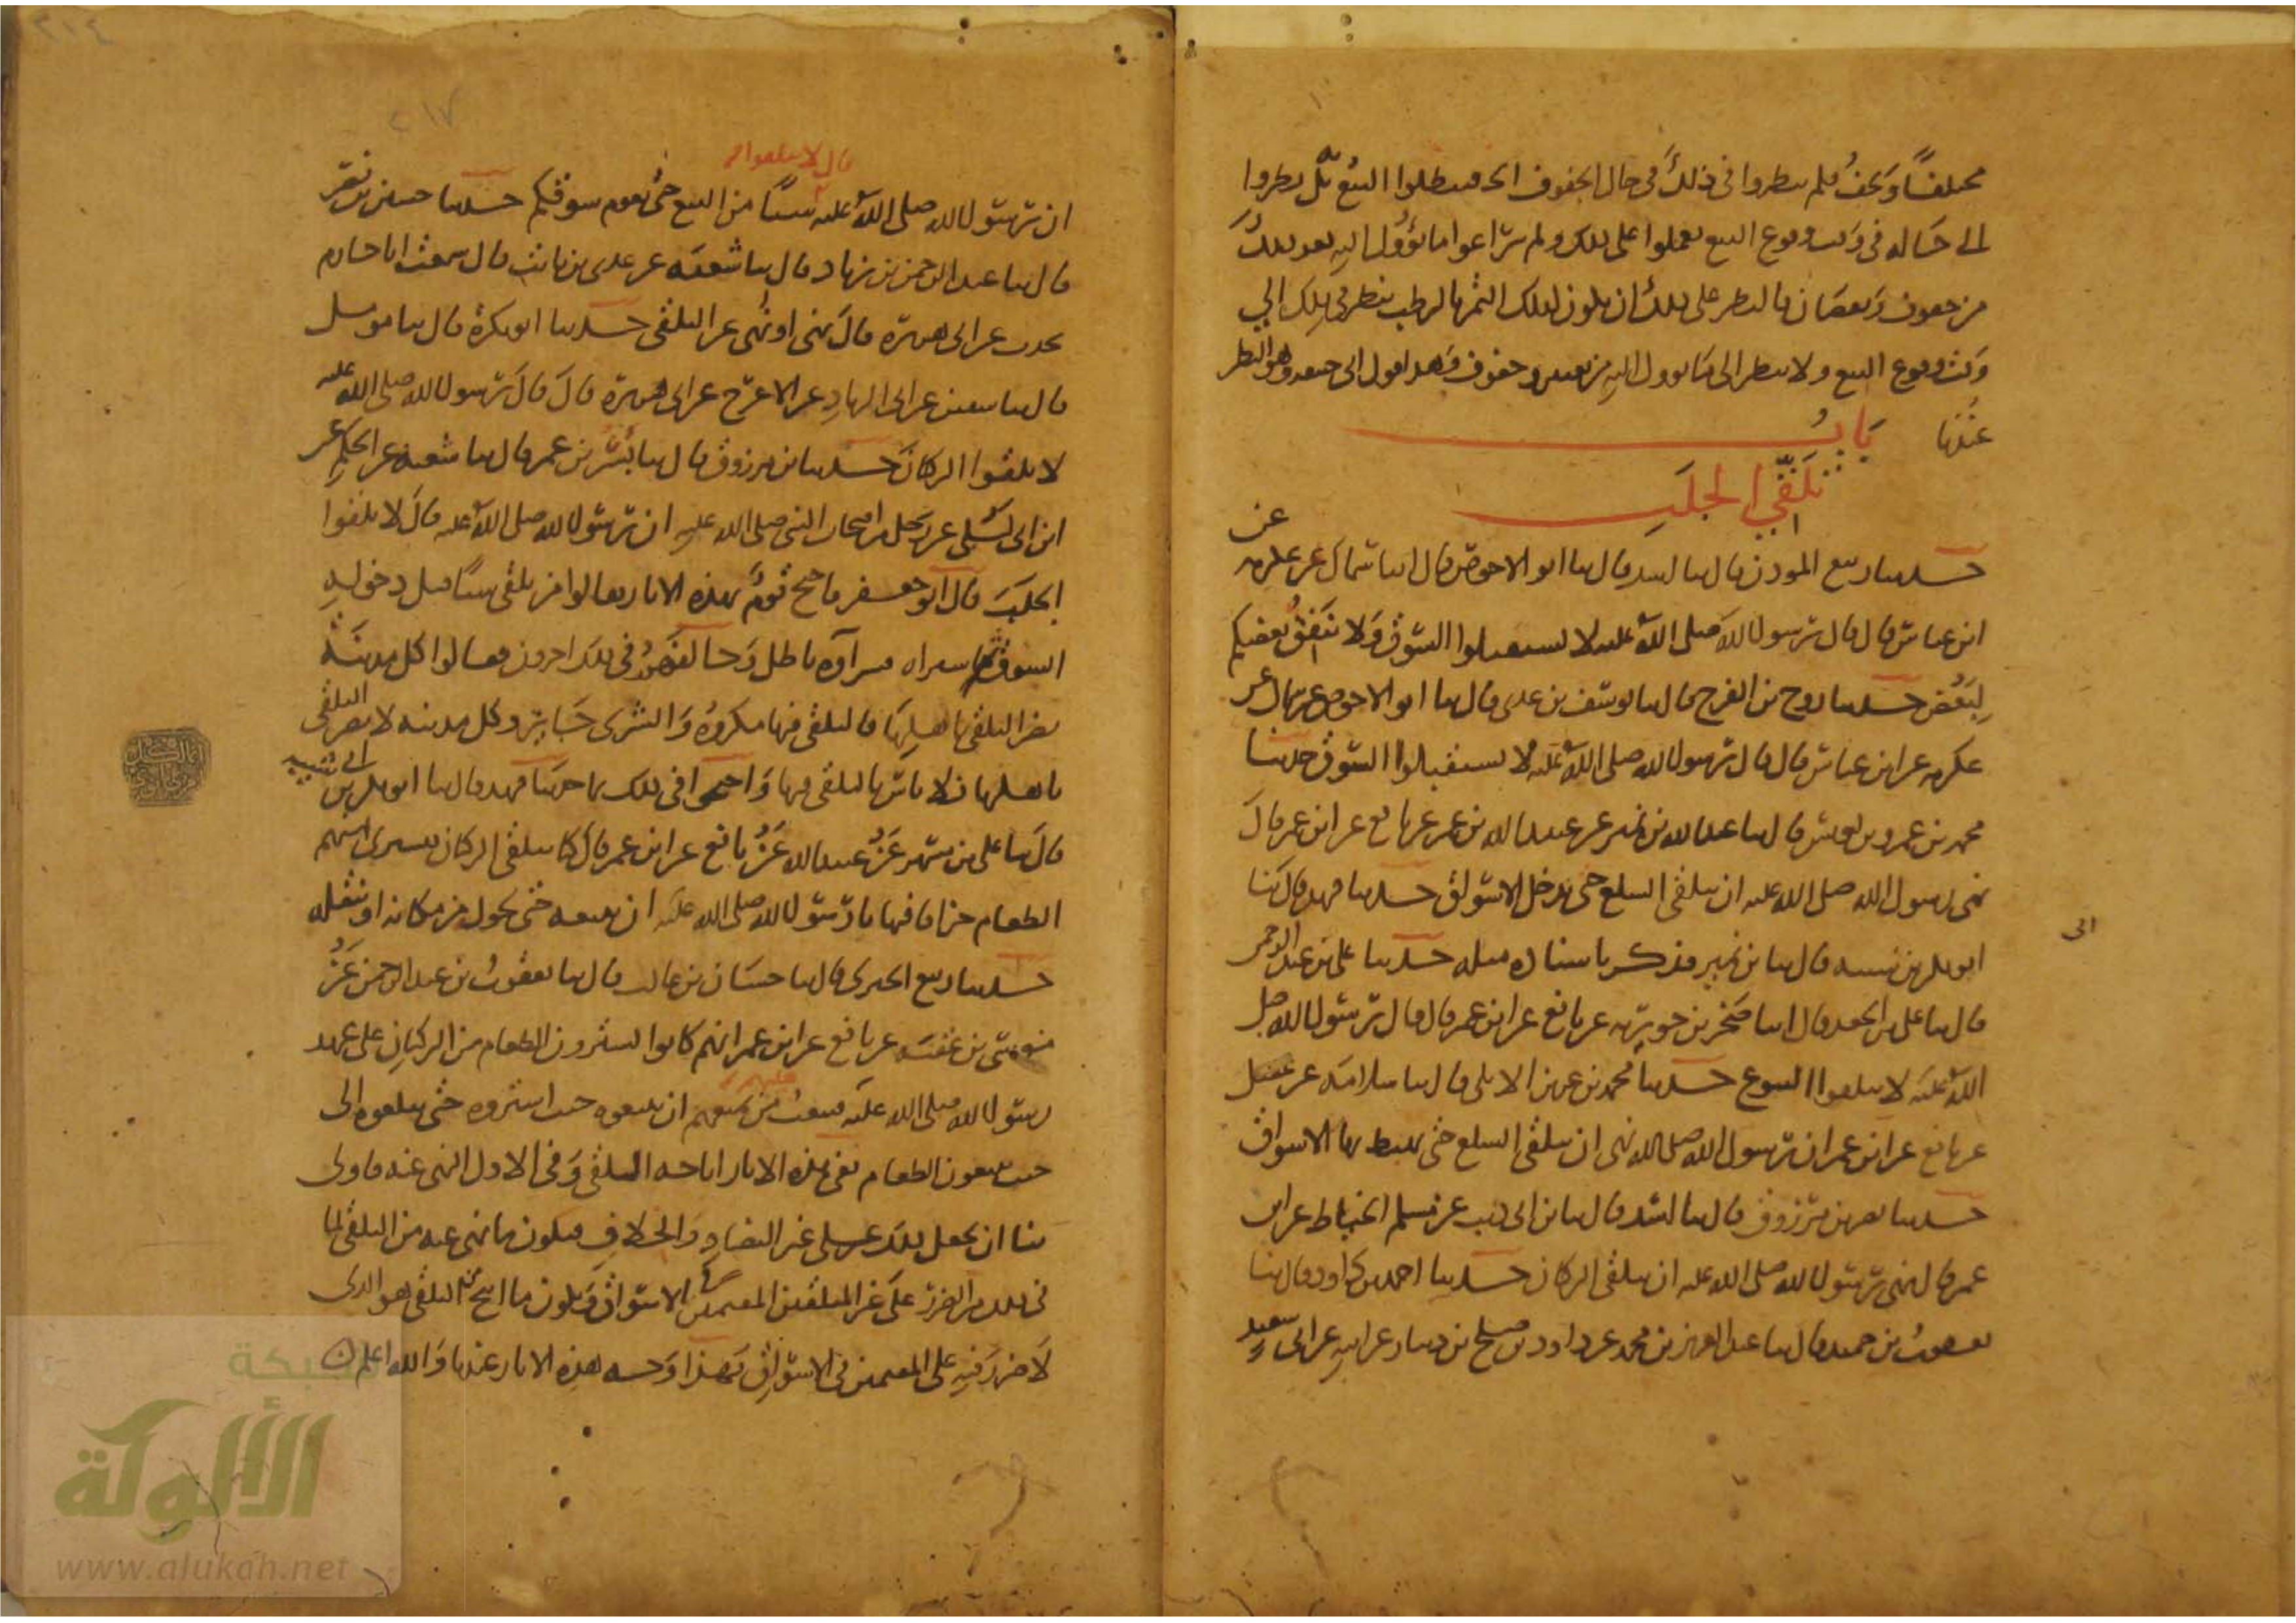 مختلفًا وَيجفُّ فلم ينظروا في ذلك في حال الجفوف
الى حَاله في وَقت وقوع البيع فعملوا على ذلك ولم يراعوا ما يؤول اليه بعد ذلك
من جفوف وَنقصان فالنظر على ذلك ان يكون لذلك التمر بالرطب ينظر في ذلك الى
وَقت وقوع البيع ولا ينظر الى مَا يؤول اليهِ من تغيير وجفوف وَهذا قول ابى حنيفه وَهو النظر
عندنا بَابُ
تَلَقِّي الجلَبِ
حدثنا ربيع المؤذن قال ثنا اسد قال ثنا ابو الاحوص قال ثنا سماك عن عكرمه عن
ابن عباس قال قال رسول الله صلى الله عليه لا تستقبلوا السوق وَلا يُنفِّق بعضكم
لِبَعْض حدثنا روح بن الفرج قال ثنا يوسف بن عدى قال ثنا ابو الاحوص عن سماك عن
عكرمه عن ابن عباس قال قال رسول الله صلى الله عليه لا تستقبلوا السّوق حدثنا
محمد بن عمرو بن يونس قال ثنا عبد الله بن نمير عن عبيد الله بن عمر عن نافع عن ابن عمر قال
نهى رسول الله صلى الله عليه ان يتلقى السلع حتى يدخل الاسواق حدثنا فهد قال ثنا
ابو بكر بن ابى شيبه قال ثنا بن نمير فذكر باسناده مثله حدثنا على بن عبد الرحمن
قال ثنا على بن الجعد قال انبا صَخر بن جويريه عن نافع عن ابن عمر قال قال رسول الله صلى
الله عليه لا تتلقوا البيوع حدثنا محمد بن عزيز الايلى قال ثنا سلامَه عن عقيل
عن نافع عن ابن عمر ان رسول الله صلى الله نهى ان يتلقى السلع حتى يهبط بها الاسواق
حدثنا نصر بن مرزوق قال ثنا اسد قال ثنا بن ابى ذيب عن مسلم الخياط عن ابن
عمر قال نهى رسول الله صلى الله عليه ان يتلقى الركبان حدثنا احمد بن داود قال ثنا
يعقوبُ بن حميد قال ثنا عبد العزيز بن محمد عن داود بن صلح بن دينار عن ابيهِ عن ابى سعيد
ان رسول الله صلى الله عليه قال لا تتلقوا شيئًا من البيع حتى يقوم سوقكم حدثنا حسين بن نصر
قال ثنا عبد الرحمن بن زياد قال ثنا شعبَه عن عدى بن ثابت قال سمعت ابا حازم
يحدث عن ابى هريرة قالَ نهى اونُهى عن التلقى حدثنا ابو بكرة قال ثنا مومل
قال ثنا سفين عن ابى الزنادِ عن الاعرج عن ابى هريرة قالَ قال رسول الله صلى الله عليه
لا تلقوا الركبانَ حدثنا بن مرزوق قال ثنا بشر بن عمر قال ثنا شعبه عن الحكم عن
ابن ابى ليلى عن رجل من اصحاب النبى صلى الله عليهِ ان رسول الله صلى الله عليه قال لا تلقوا
الجلَبَ قال ابو جعفر فاحتج قومٌ بهذه الاثار فقالوا من تلقى شيئًا قبل دخولهِ
السوق ثم اشتراه فشراوه باطل وَخالفهم في ذلك اخرون فقالوا كل مدينَة
يضر التلقى باهلِهَا فالتلقى فيها مكروهٌ وَالشرى جَايز وكل مدينه لا يضر التلقى
باهلها فلا باس بالتلقى فيها وَاحتجوا في ذلك بما حدثنا فهد قال ثنا ابو بكر بن ابى شيبه
قالَ ثنا على بن مسهر عَنْ عبيد الله عَنْ نافع عن ابن عمر قال كنا نتلقى الركبان فنشترى منهم
الطعام جزافا فنهانا رَسُول الله صلى الله عليه ان نبيعه حتى نحول من مكانه او ننقله
حدثنا ربيع الجيزى قال ثنا حسّان بن غالب قال ثنا يعقوبُ بن عبد الرحمن عَنْ
موسى بن عقبَه عن نافع عن ابن عمر انهم كانوا يشترون الطعام من الركبان على عهد
رسُول الله صلى الله عليه فيبعثُ عليهم من يمنعهم ان يبيعوه حيث اشتروه حتى يبلغوه الى
حيث يبيعون الطعام ففى هذه الاثار اباحه التلقى وَفى الاول النهى عنه فاولى
بنا ان نجعل ذلك على غير التضادِ وَالخلافِ فيكون ما نهى عنه من التلقى لما
في ذلك من الضرر عَلَى غير المتلقين المقيمين في الاسواق وَيكون ما ابيح من التلقى هو الذى
لَا ضررَ فيهِ على المقيمين فى الاسواق فهذا وَجه هذه الاثار عندنا وَالله اعلم
شبكة
الألوكة
www.alukah.net